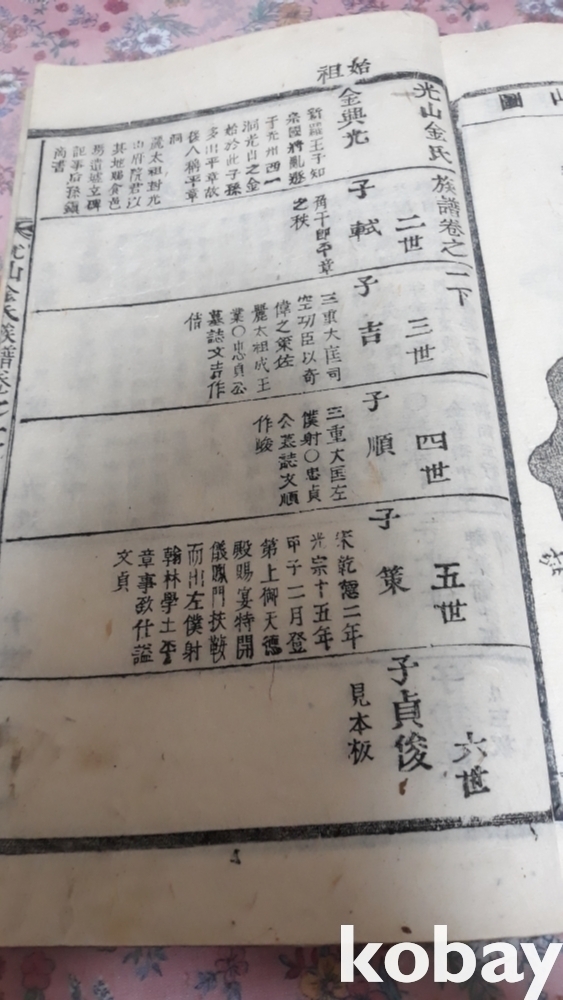 光山金氏族譜卷之一下
始祖
金興光
新羅王子知
宗國將亂遯
于光州西一
洞光自之金
始於此子孫
多出平章故
後人稱平章
洞
麗太祖封光
山府院君以
其地賜食邑
尚書
二世
子軾
角干郎平章
之秩
三世
子吉
三重大匡司
空功臣以奇
偉之策佐
麗太祖成王
業〇忠貞公
墓誌文吉作
佶
四世
子順
三重大匡左
僕射〇忠貞
公墓誌文順
作峻
五世
子策
宋乾德二年
光宗十五年
甲子二月登
第上御天德
殿賜宴特開
儀鳳門扶鞍
而出左僕射
翰林學士平
章事致仕謚
文貞
六世
子貞俊
見本板
光山金氏族譜卷之
圖
kobay